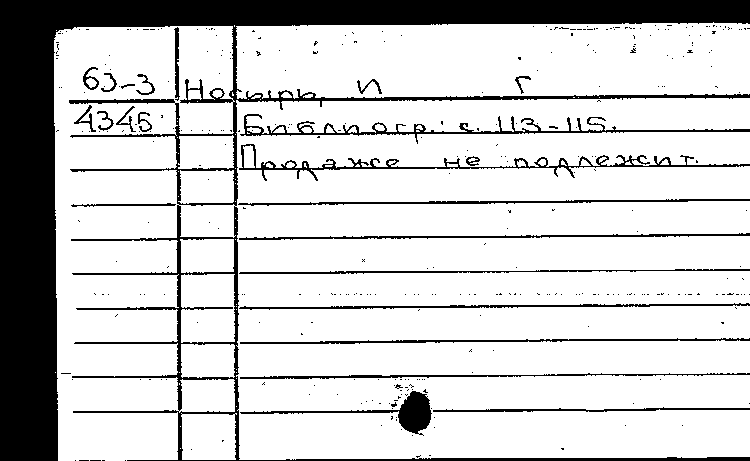 63-3 Носырь, И Г
4345 Библиогр.: с. 113-115.
Продаже не подлежит.